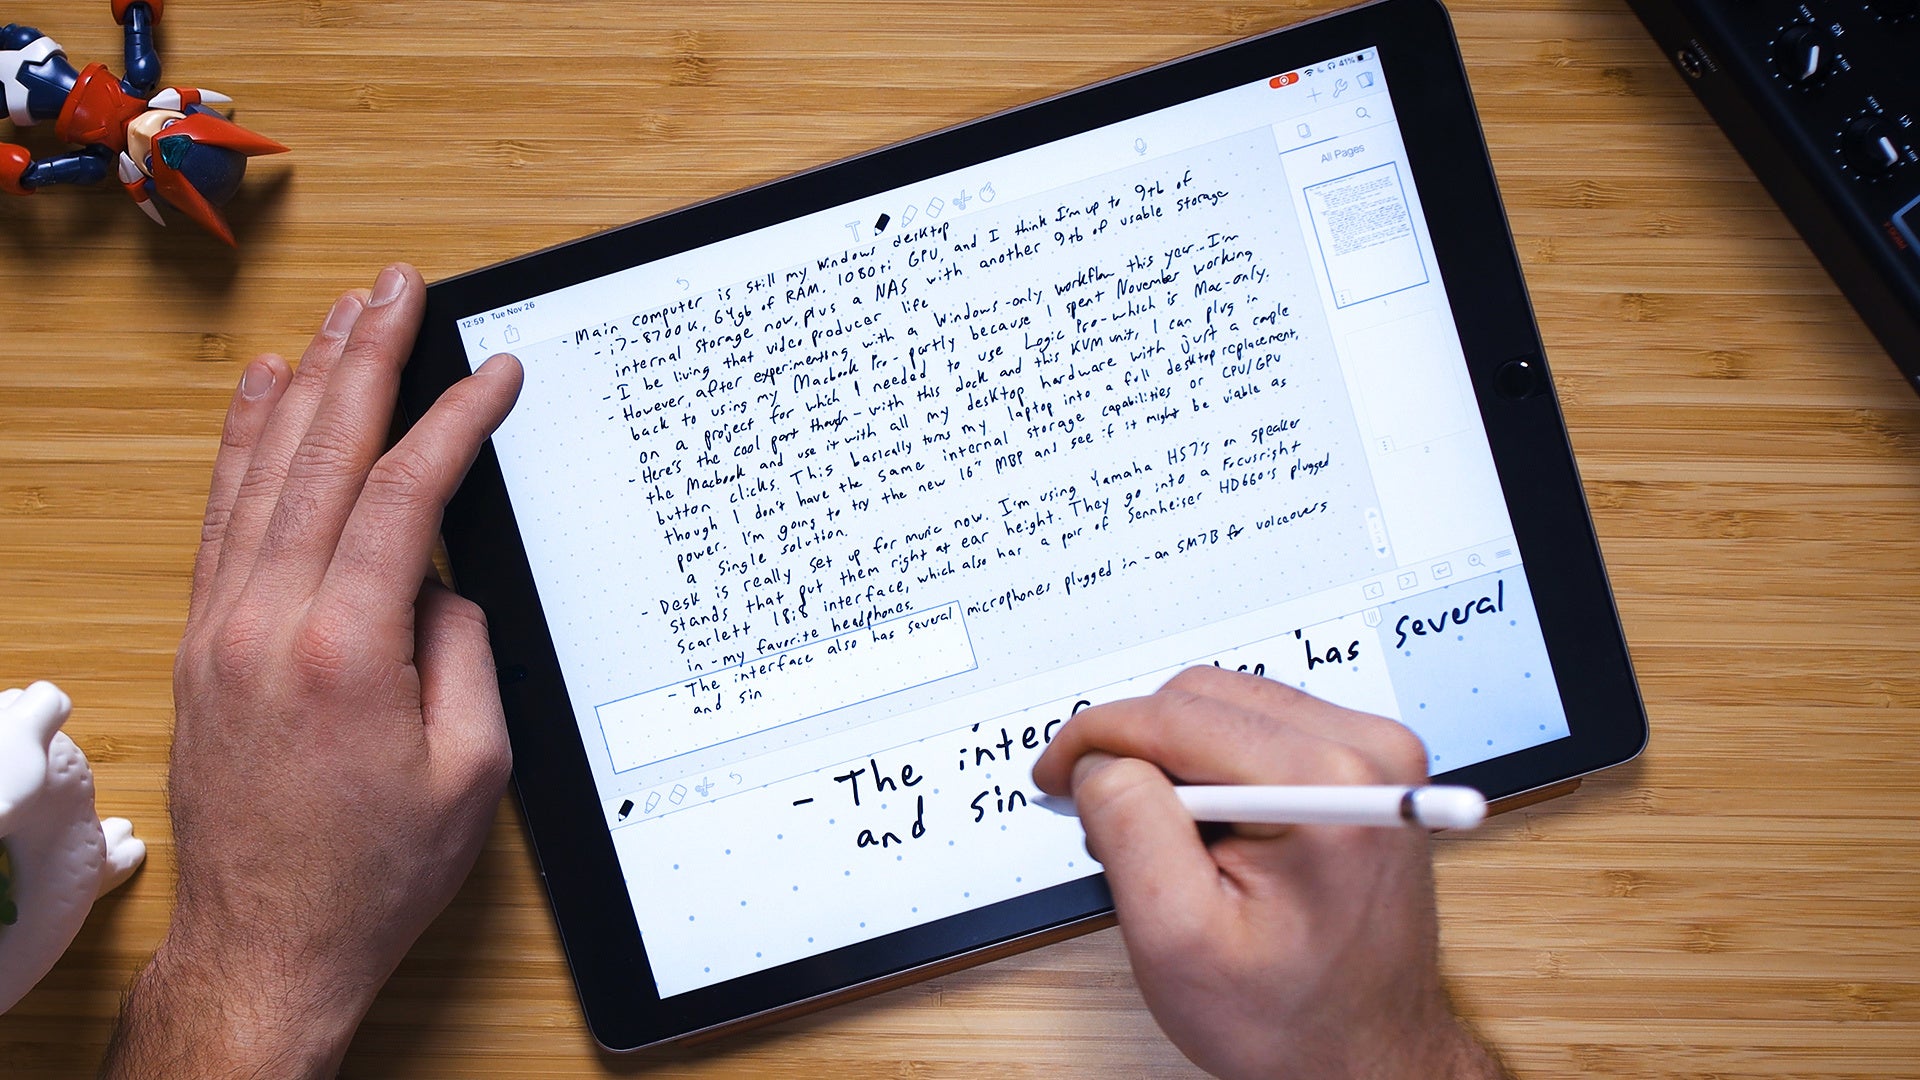 12:59 Tue Nov 26
41%
All Pages
1
2
- Main computer is still my Windows desktop
- i7-8700K, 64gb of RAM, 1080ti GPU, and I think I'm up to 9tb of
internal storage now, plus a NAS with another 9tb of usable storage
- I be living that video producer life
- However, after experimenting with a Windows-only workflow this year.. I'm
back to using my Macbook Pro - partly because I spent November working
on a project for which I needed to use Logic Pro - which is Mac-only.
- Here's the cool part though - with this dock and this KVM unit, I can plug in
the Macbook and use it with all my desktop hardware with just a couple
button clicks. This basically turns my laptop into a full desktop replacement,
though I don't have the same internal storage capabilities or CPU/GPU
power. I'm going to try the new 16" MBP and see if it might be viable as
a single solution.
- Desk is really set up for music now. I'm using Yamaha HS7's on speaker
stands that put them right at ear height. They go into a Focusright
Scarlett 18i8 interface, which also has a pair of Sennheiser HD660's plugged
in - my favorite headphones.
- The interface also has several microphones plugged in - an SM7B for voiceovers
and sin
- The interf has several
and sin
MAX
MIN
K2
MAX
MIN
K1